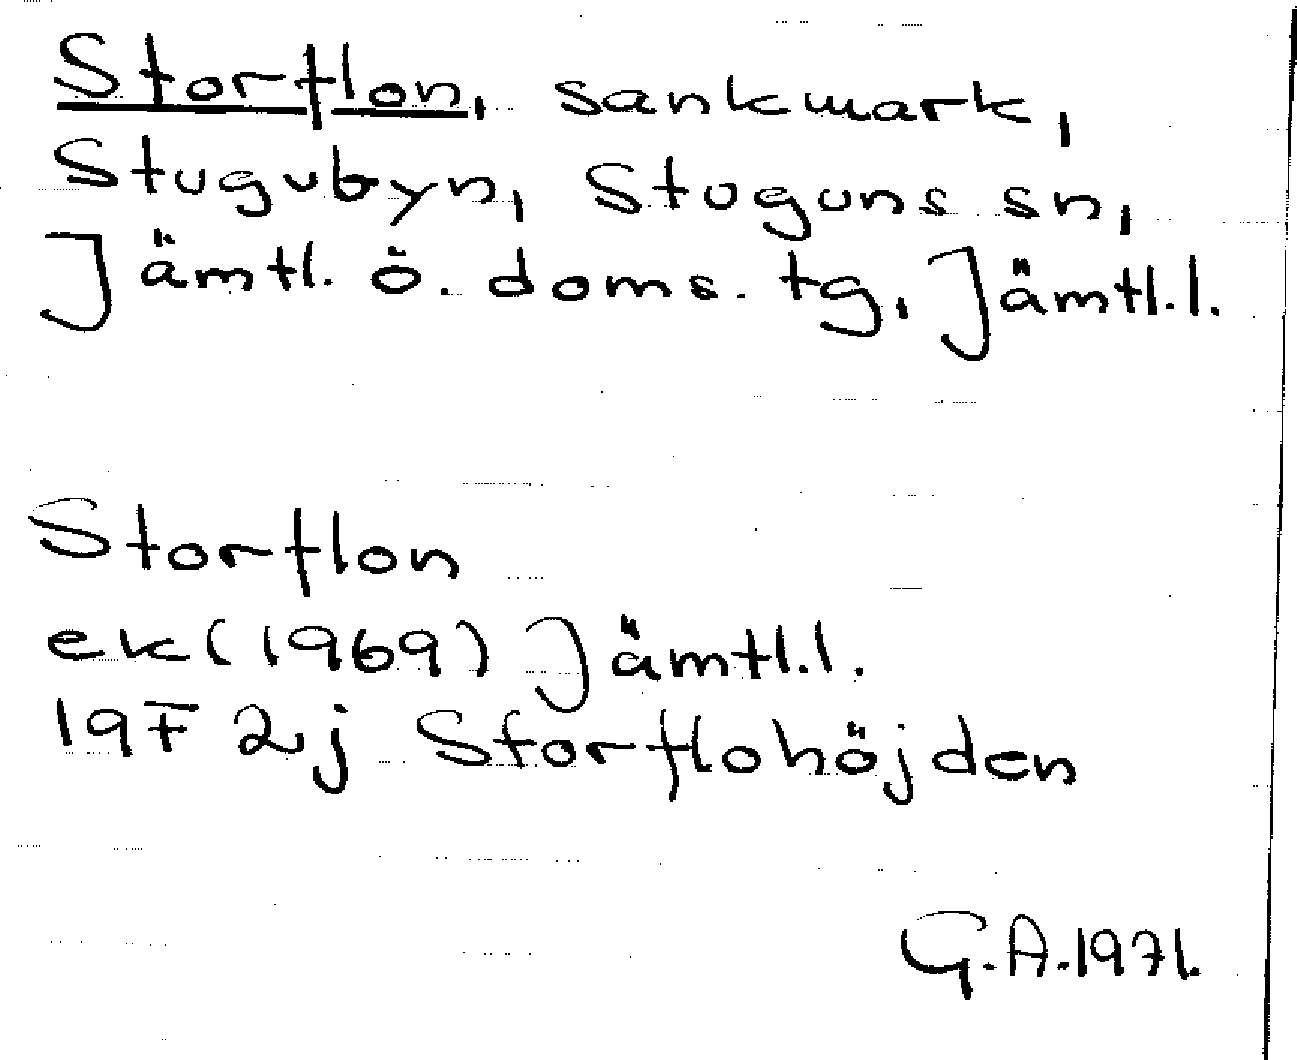 Storflon, sankmark,
Stugubyn, Stuguns sn,
Jämtl. ö. doms. tg, Jämtl.l.
Storflon
ek (1969) Jämtl.l.
19F 2j Storflohöjden
G.A. 1971.